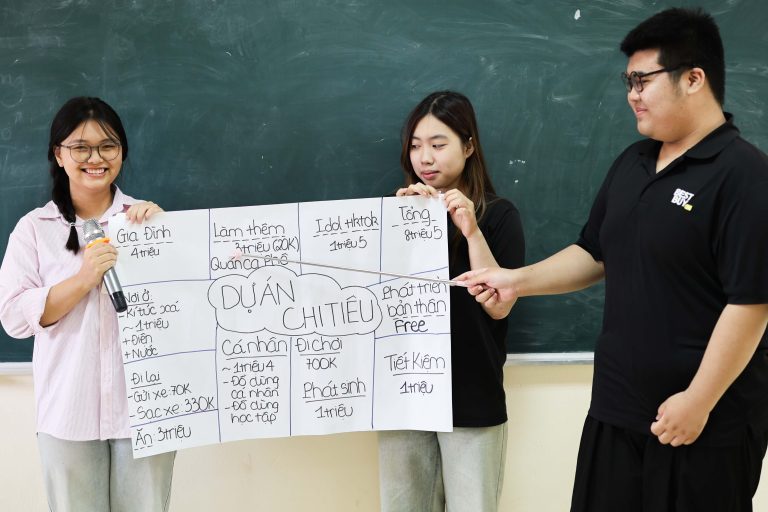 Gia Đình
4 triệu
Làm thêm
3triệu (20K)
Quán cà phê
Idol tiktok
1triệu 5
Tổng
8triệu 5
DỰ ÁN
CHI TIÊU
Nơi ở
- Kí túc xá
~ 1triệu
+ Điện
+ Nước
Đi lại
- Gửi xe 70K
- Sạc xe 330K
Ăn: 3triệu
Cá nhân
~ 1triệu 4
- Đồ dùng
cá nhân
- Đồ dùng
học tập
Đi chơi
700K
Phát sinh
1triệu
Phát triển
bản thân
Free
Tiết Kiệm
1triệu
BEST
BUY